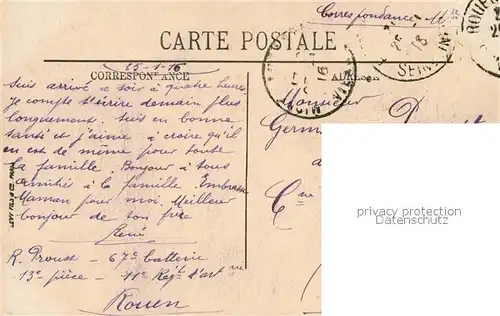 Correspondance Mre
CARTE POSTALE
CORRESPONDANCE
ADRESSE
25-1-16
Suis arrivé ce soir à quatre heures
Je compte t'écrire demain plus
longuement. Suis en bonne
santé et j'aime à croire qu'il
en est de même pour toute
la famille. Bonjour à tous
amitiés à la famille. Embrasse
Maman pour moi. Meilleur
bonjour de ton frère
René
R. Proust - 67e batterie
13e pièce - 11e Régt d'artrie
Rouen
Monsieur
Germ
privacy protection
Datenschutz
ROUE
SEINE